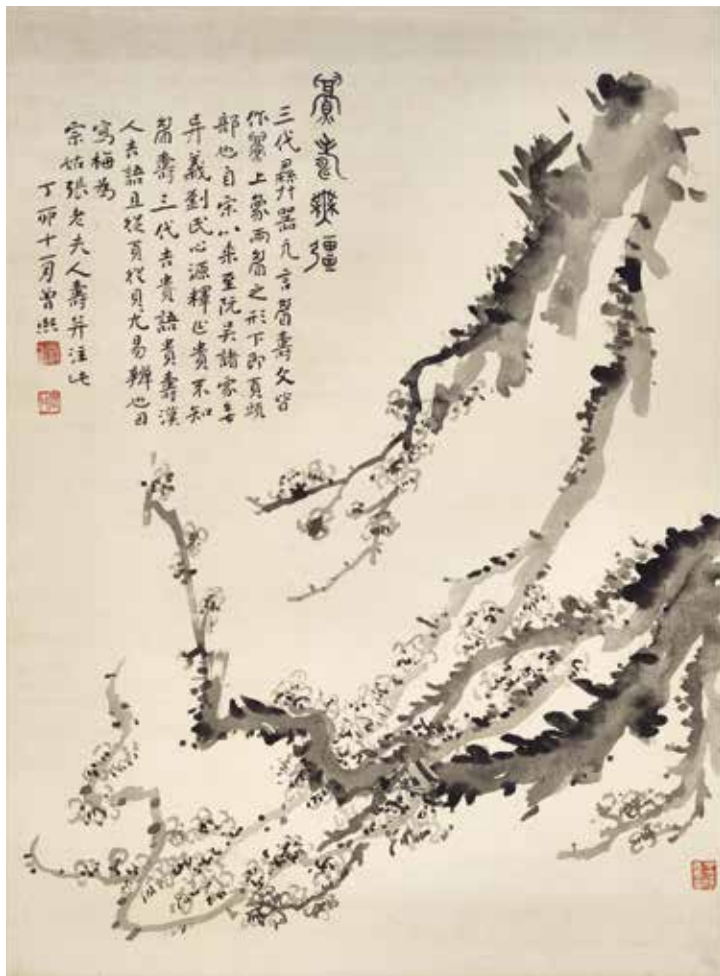 眉壽無疆
三代彝器凡言眉壽文皆
作釁上象兩眉之形下即頁頌
部也自宋以來至阮吳諸家無
異義劉氏心源釋作貴不知
眉壽三代吉貴語貴壽漢
人吉語且從頁從貝尤易辨也因
寫梅為
宗姑張老夫人壽并注此
丁卯十一月曾熙